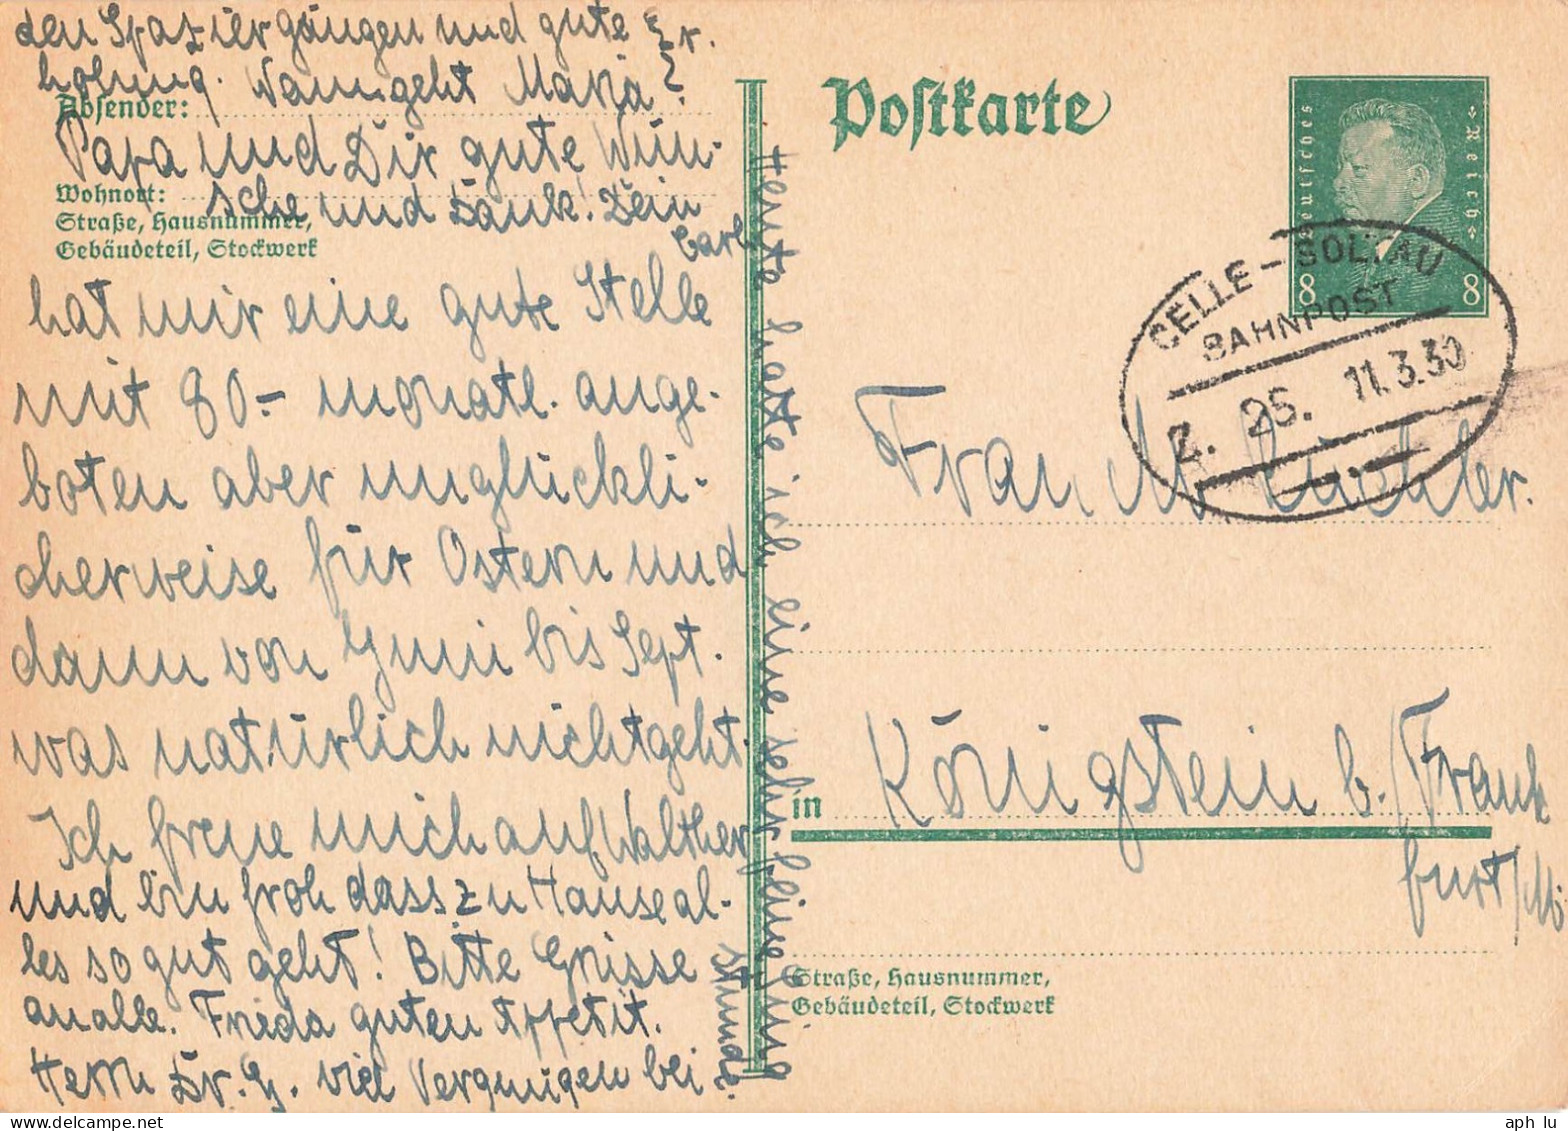 den Spaziergängen und gute Er-
holung. Wann geht Maria?
Absender:
Papa und Dir gute Wün-
Wohnort:
sche und Dank! Dein
Straße, Hausnummer,
Carl
Gebäudeteil, Stockwerk
hat mir eine gute Stelle
mit 80.- monatl. ange-
boten aber unglückli-
cherweise für Ostern und
dann von Juni bis Sept.
was natürlich nicht geht.
Ich freue mich auf Walther
und bin froh dass zu Hause al-
les so gut geht! Bitte Grüsse
an alle. Frieda guten Appetit.
Herrn Dr. G. viel Vergnügen bei
Heute hatte ich eine sehr feine
Stunde
Postkarte
Deutsches Reich
8 8
CELLE - SOLTAU
BAHNPOST
Z. 26. 11.3.30
Frau M.
in Königstein b./Frank
furt/M
Straße, Hausnummer,
Gebäudeteil, Stockwerk
aph lu